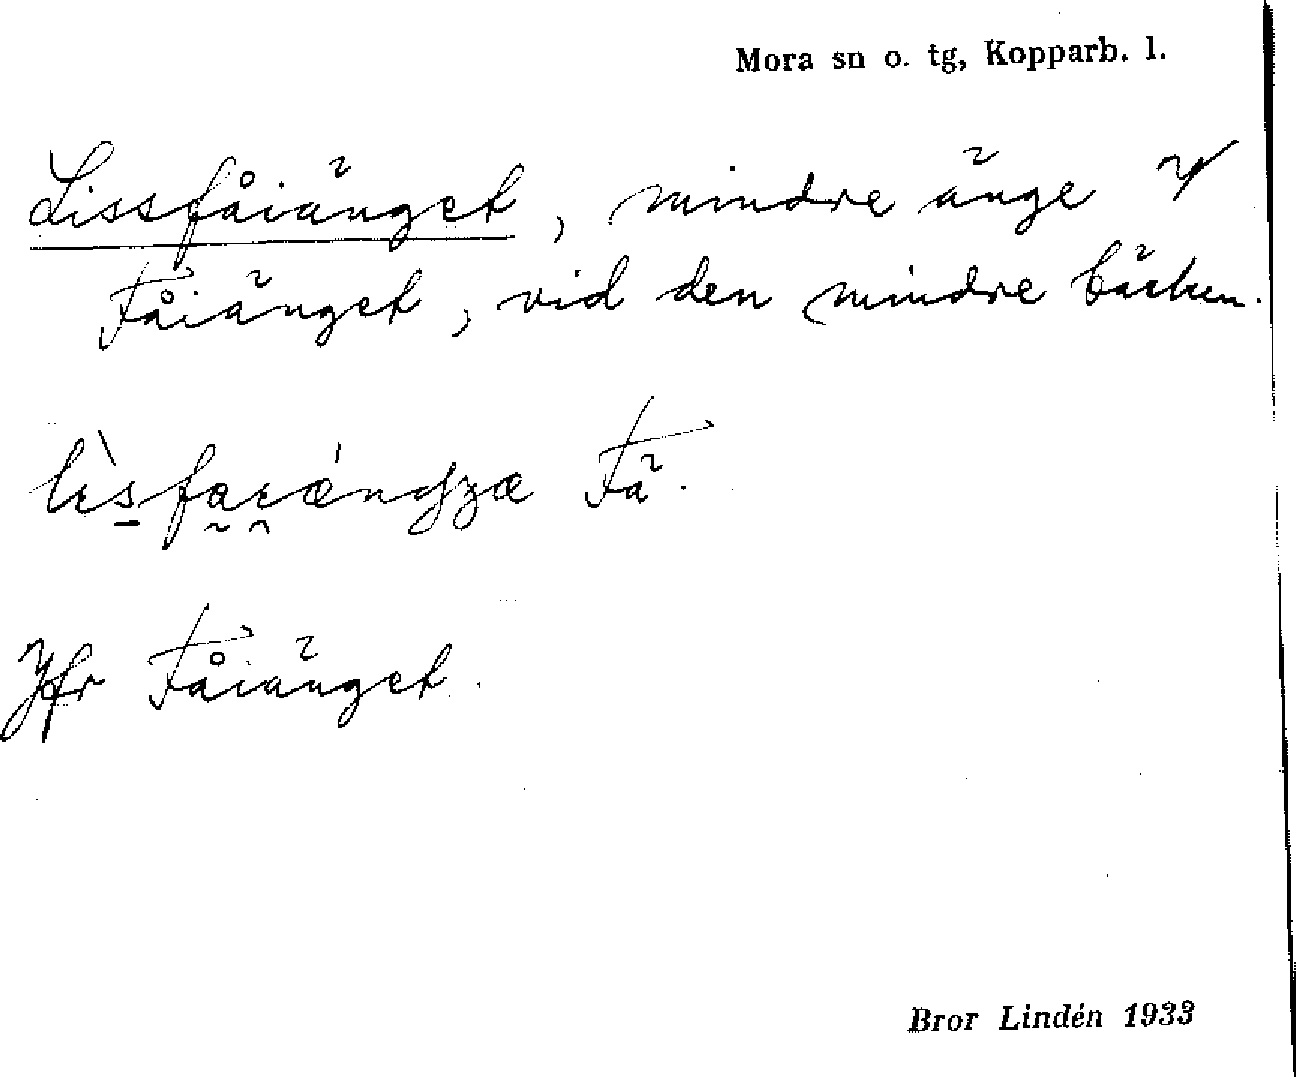 Mora sn o. tg, Kopparb. l.
Lissfåiänget, mindre änge
Fåiänget, vid den mindre bäcken.
Fä.
Jfr Fåiänget.
Bror Lindén 1933